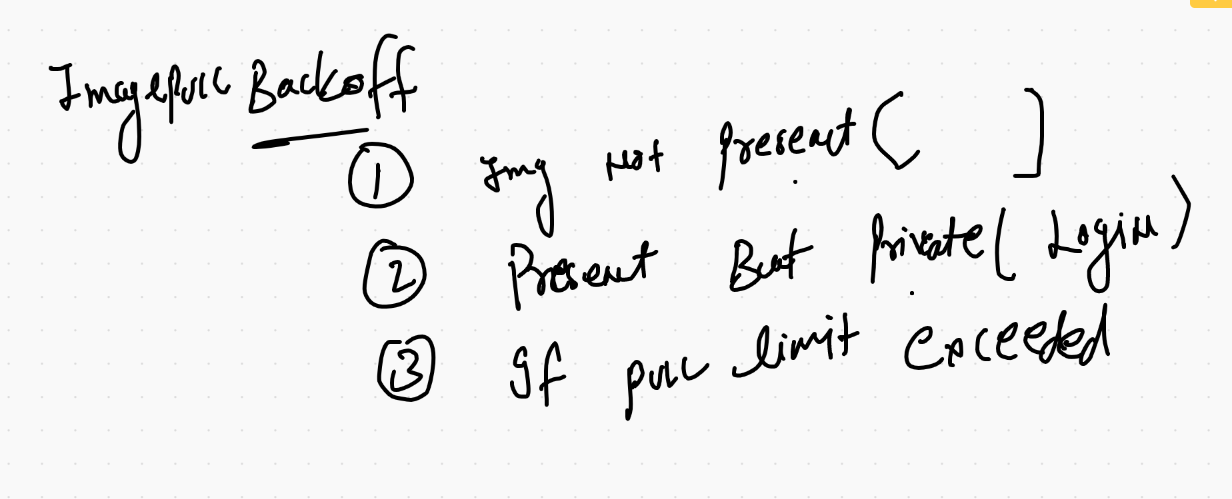 Imagepull Backoff
① Img Not Present ( ]
② Present But Private ( Login )
③ If pull limit exceeded